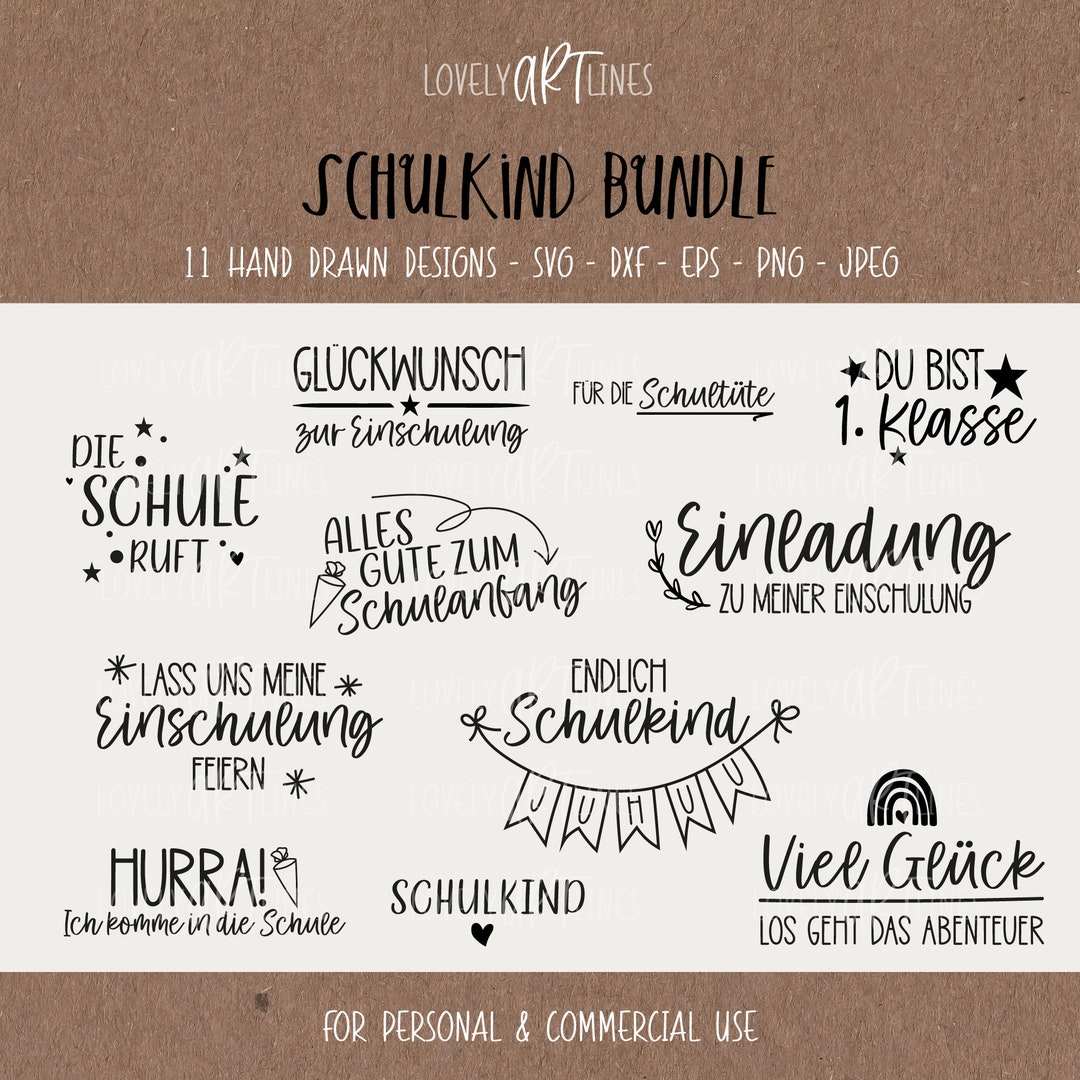 LOVELY ART LINES
SCHULKIND BUNDLE
11 HAND DRAWN DESIGNS - SVG - DXF - EPS - PNG - JPEG
GLÜCKWUNSCH
zur Einschulung
FÜR DIE Schultüte
DU BIST
1. Klasse
DIE
SCHULE
RUFT
ALLES
GUTE ZUM
Schulanfang
Einladung
ZU MEINER EINSCHULUNG
LASS UNS MEINE
Einschulung
FEIERN
ENDLICH
Schulkind
JUHUU
HURRA!
Ich komme in die Schule
SCHULKIND
Viel Glück
LOS GEHT DAS ABENTEUER
FOR PERSONAL & COMMERCIAL USE